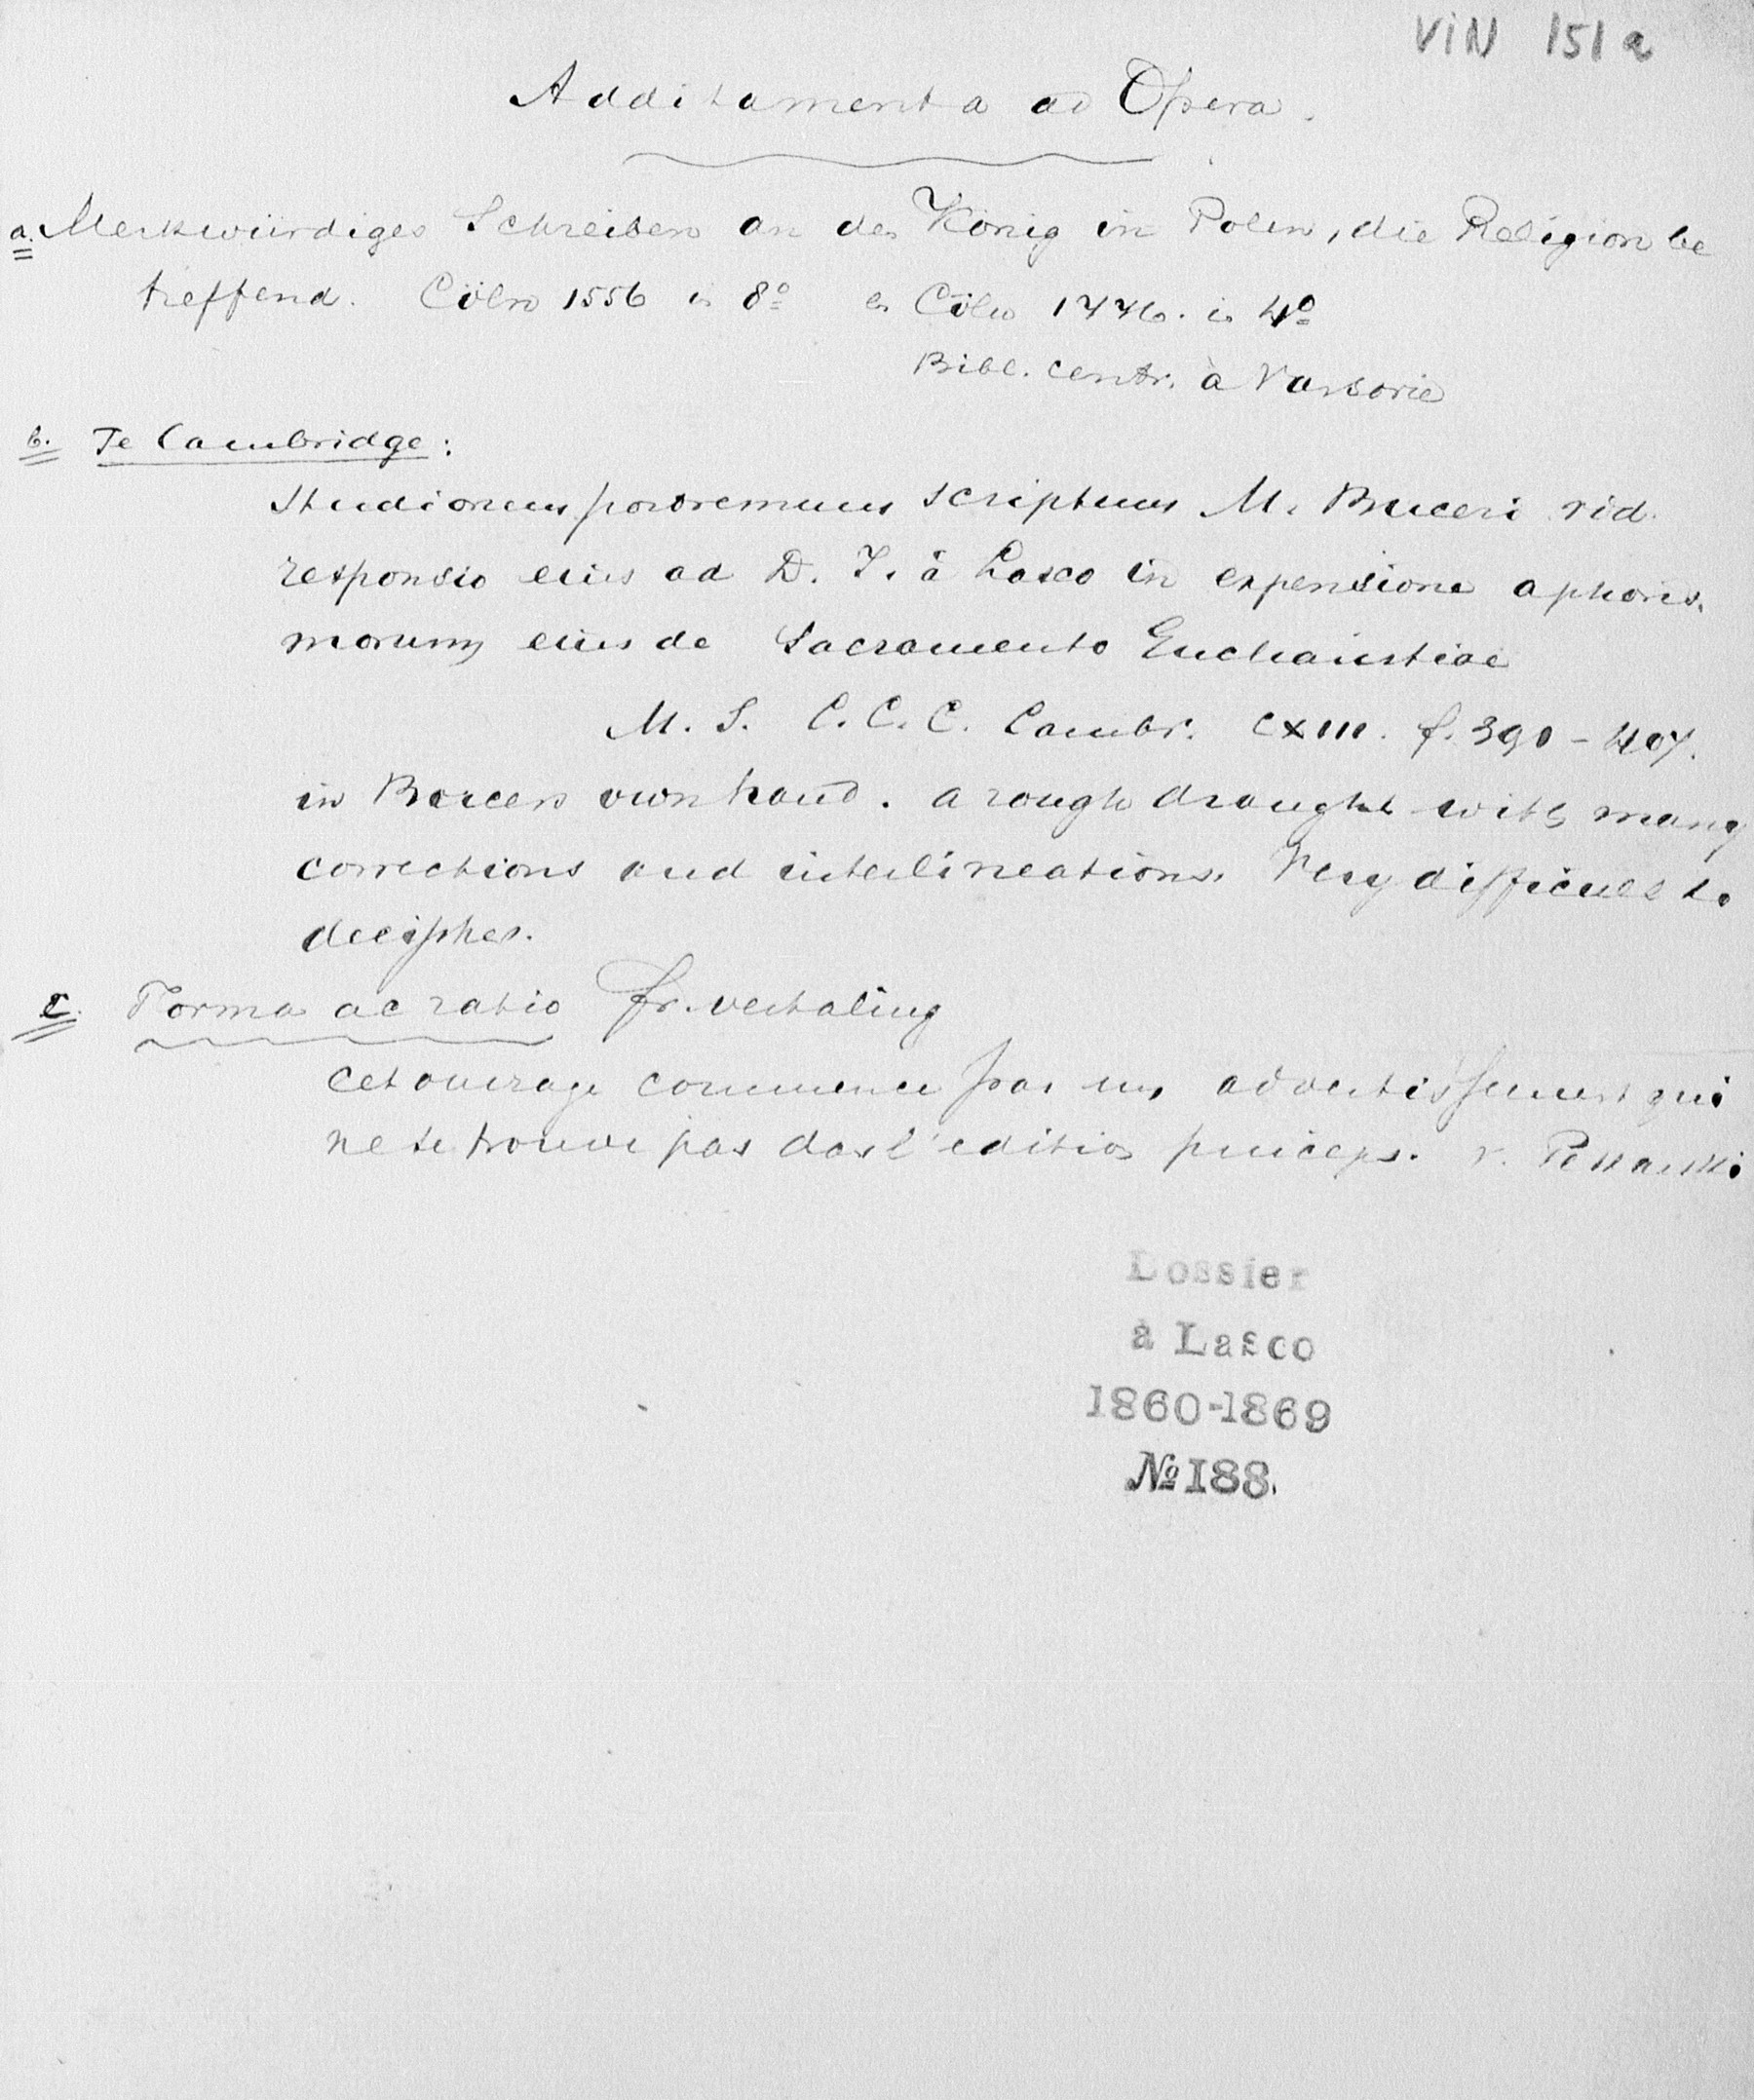 VIN 151a
Additamenta ad Opera.
a. Merkwürdiges Schreiben an den König in Polen, die Religion be
treffend. Cöln 1556 in 8º en Cöln 1776. in 4º
Bibl. centr. à Varsovie
b. Te Cambridge:
Studiorum postremum scriptum M. Buceri vid.
responsio eius ad D. J. à Lasco in expensione aphoris.
morum eius de Sacramento Eucharistiae
M. S. C. C. C. Cambr. CXIII. f. 390-407.
in Bucers own hand. a rough draught with many
corrections and interlineations. Very difficult to
decipher.
c. Forma ac ratio fr. vertaling
Cet ouvrage commence par un advertissement qui
ne se trouve pas dans l'edition princeps. v.
Dossier
à Lasco
1860-1869
№ 188.